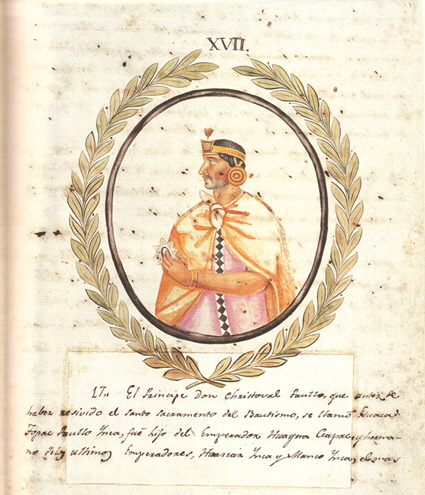 XVII.
17.. El Principe Don Christoval Paullo, que antes de
haber resivido el santo sacramento del Bautismo, se llamó
Topac Paullo Ynca, fué hijo del Emperador Huayna Ccapac y herma-
no de los ultimos Emperadores, Huascár Ynca y Manco Ynca